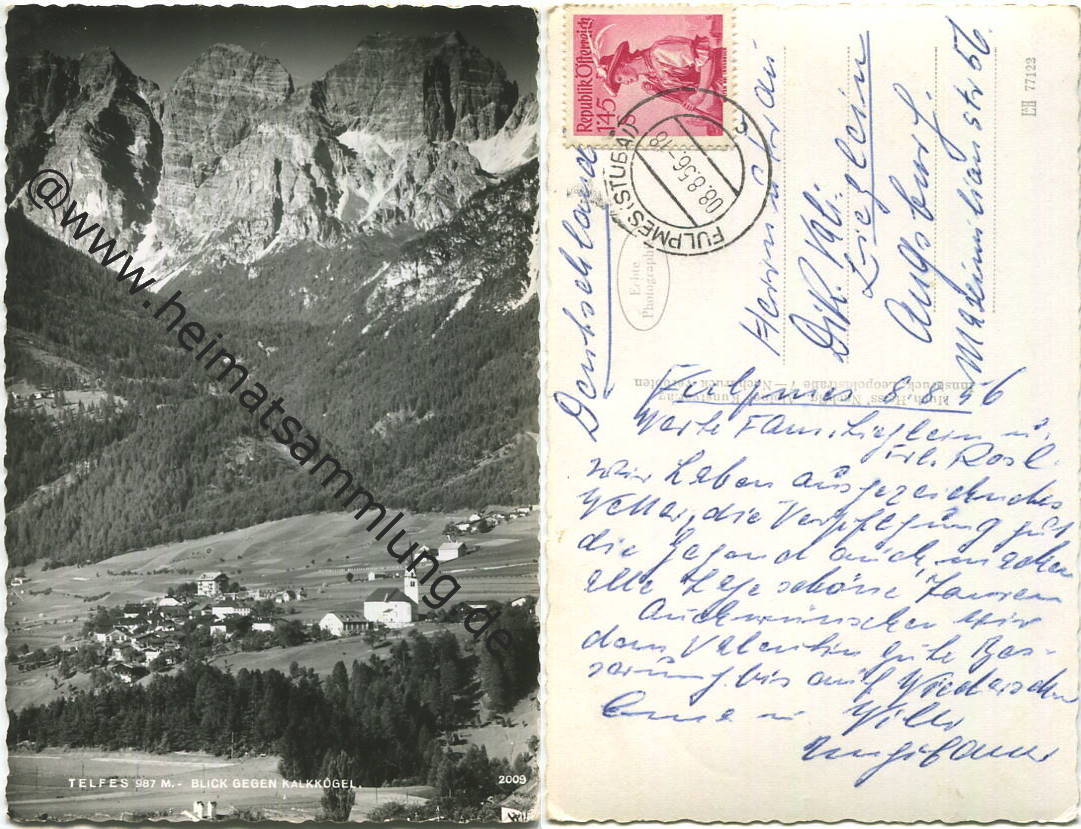 TELFES 987 M. - BLICK GEGEN KALKKÖGEL.
2009
@www.heimatsammlung.de
Republik Österreich
1 45
FULPMES (STUBAI)
08.8.56-18
Echte
Photographie
EH 77122
Innsbruck, Leopoldstraße 7 — Nachdruck verboten
Herrn u. Frau
Valt.
Lieglein
Augsburg.
Maximilianstr 56
Deutschland
Fulpmes 8.8.56
Werte Fam. Lieglein u.
Frl. Rosl.
Wir haben ausgezeichnetes
Wetter, die Verpflegung gut
die Gegend auch, machen
alle Tage schöne Touren
Auch wünschen wir
dem Valentin gute Bes-
serung. bis auf Wiedersehen
Willi